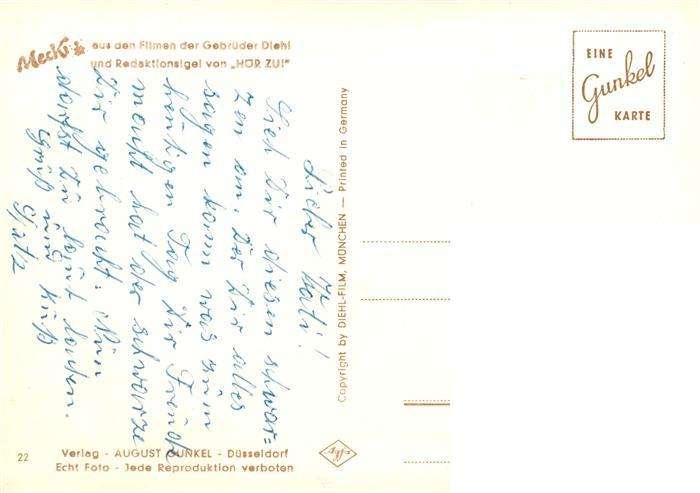 Mecki
aus den Filmen der Gebrüder Diehl
und Redaktionsigel von „HÖR ZU!"
EINE
Gunkel
KARTE
Lieber Kati!
Sieh Dir diesen schwar=
zen an, der Dir alles
sagen kann was zum
heutigen Tag Dir Freude
macht hat der schwarze
Dir gebracht. Nun
darfst Du laut lachen.
Gruß und Kuß
Copyright by DIEHL-FILM, MÜNCHEN — Printed in Germany
22
Verlag - AUGUST GUNKEL - Düsseldorf
Echt Foto - Jede Reproduktion verboten